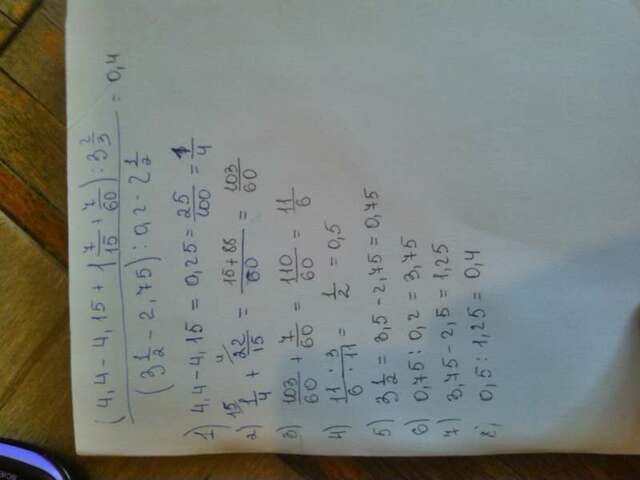 (4,4 - 4,15 + 1 7/15 + 7/60) : 3 2/3
(3 1/2 - 2,75) : 0,2 - 2 1/2 = 0,4
1) 4,4 - 4,15 = 0,25 = 25/100 = 1/4
2) 1/4 + 22/15 = (15 + 88)/60 = 103/60
3) 103/60 + 7/60 = 110/60 = 11/6
4) (11 · 3)/(6 · 11) = 1/2 = 0,5
5) 3 1/2 = 3,5 - 2,75 = 0,75
6) 0,75 : 0,2 = 3,75
7) 3,75 - 2,5 = 1,25
8) 0,5 : 1,25 = 0,4